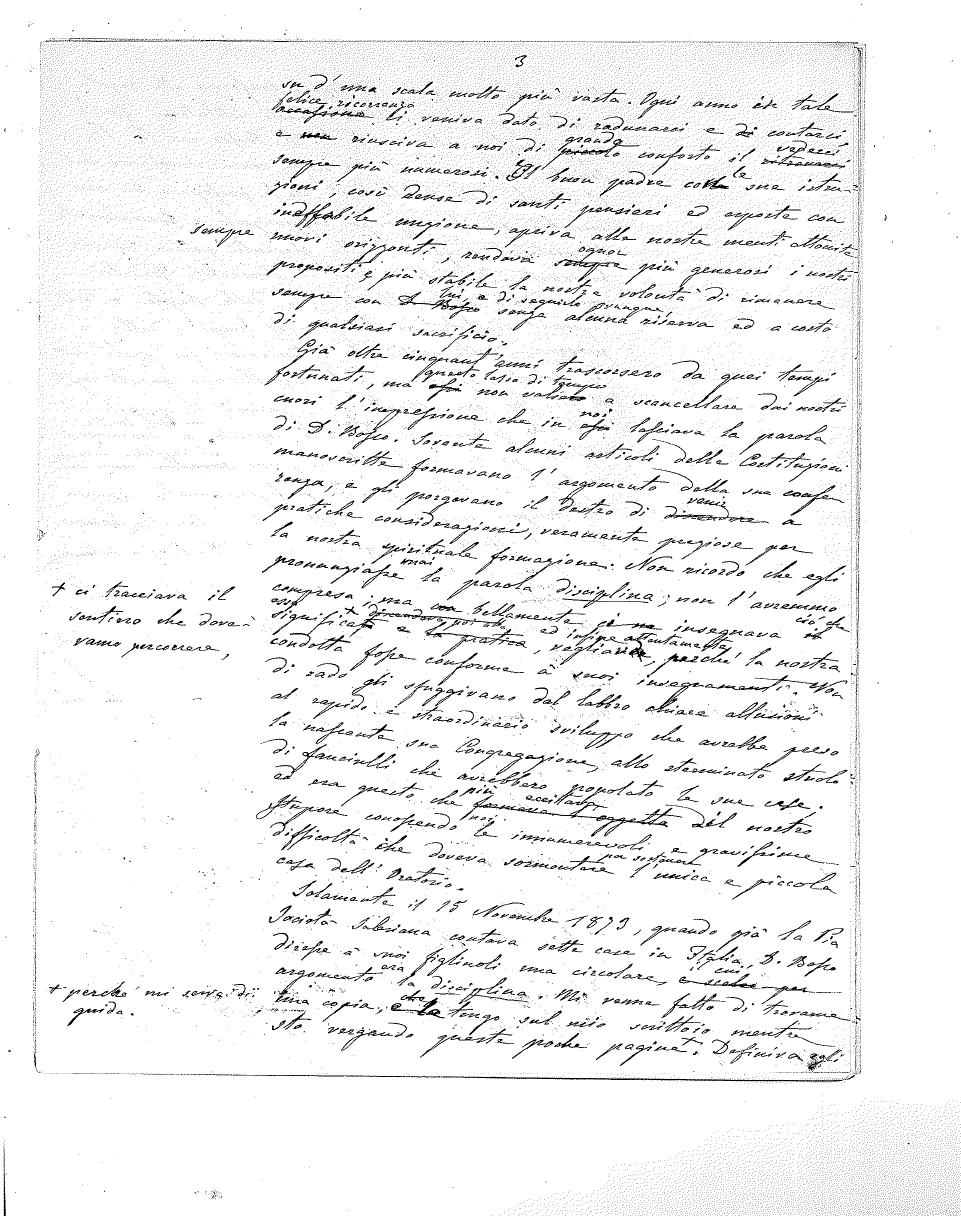 3
su d'una scala molto più vasta. Ogni anno in tale
felice ricorrenza
occasione ci veniva dato di radunarci e di contarci,
grande vederci
e non riusciva a noi di piccolo conforto il ritrovarci
sempre più numerosi. Il buon padre colle sue istru-
zioni, così dense di santi pensieri ed esposte con
ineffabile unzione, apriva alle nostre menti attonite
sempre nuovi orizzonti, rendeva sempre più generosi i nostri
ognor
propositi e più stabile la nostra volontà di rimanere
lui, e di seguirlo ovunque,
sempre con D. Bosco senza alcuna riserva ed a costo
di qualsiasi sacrificio.
Già oltre cinquant'anni trascorsero da quei tempi
questo lasso di tempo
fortunati, ma essi non valsero a scancellare dai nostri
noi
cuori l'impressione che in essi lasciava la parola
di D. Bosco. Sovente alcuni articoli delle Costituzioni
manoscritte formavano l'argomento della sua confe-
renza, e gli porgevano il destro di discendere a
venire
pratiche considerazioni, veramente preziose per
la nostra spirituale formazione. Non ricordo che egli
mai
pronunziasse la parola disciplina; non l'avremmo
compresa; ma con bellamente ce ne insegnava il
ciò che
essa
significato + discendeva poi alla
e la pratica, ed infine attentamente
vegliava, perché la nostra
condotta fosse conforme a' suoi insegnamenti. Non
+ ci tracciava il
sentiero che dove-
vamo percorrere,
di rado gli sfuggivano dal labbro chiare allusioni
al rapido e straordinario sviluppo che avrebbe preso
la nascente sua Congregazione, allo sterminato stuolo
di fanciulli che avrebbero popolato le sue case;
più eccitava
ed era questo che formava l'oggetto del nostro
noi
stupore conoscendo le innumerevoli e gravissime
per sostenere
difficoltà che doveva sormontare l'unica e piccola
casa dell'Oratorio.
Solamente il 15 Novembre 1873, quando già la Pia
Società Salesiana contava sette case in Italia, D. Bosco
diresse a' suoi figliuoli una circolare, cui per
era
argomento la disciplina. Mi venne fatto di trovarne
che
una copia, e la tengo sul mio scrittoio mentre
+ perché mi serva di
guida.
sto vergando queste poche pagine. Definiva egli